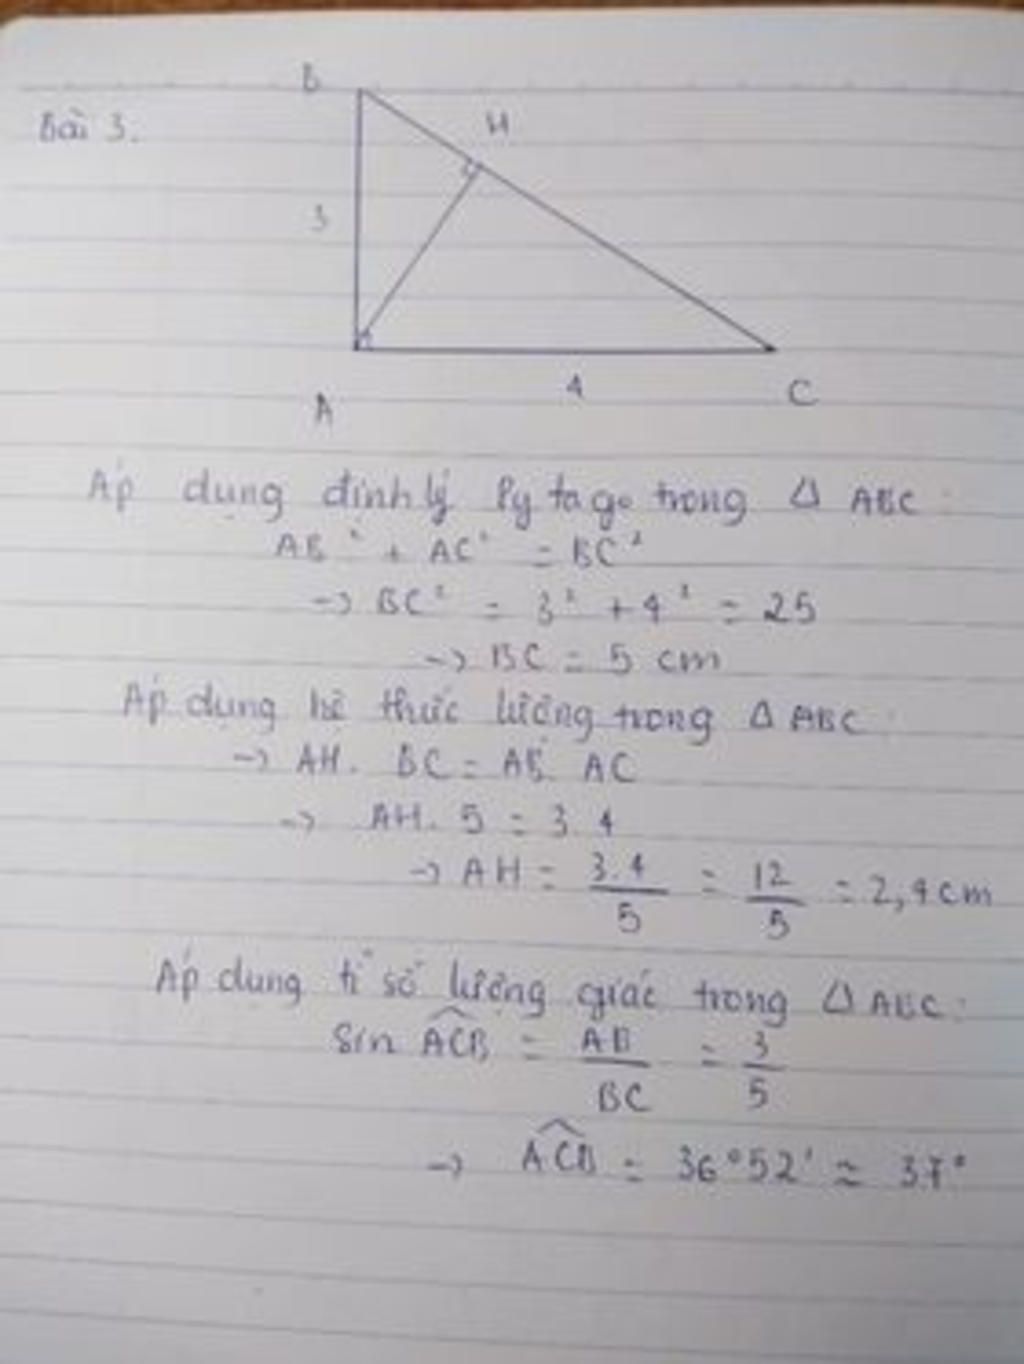 B
H
Bài 3.
3
A
4
C
Áp dụng định lý Pytago trong Δ ABC:
AB² + AC² = BC²
→ BC² = 3² + 4² = 25
→ BC = 5 cm
Áp dụng hệ thức lượng trong Δ ABC:
→ AH. BC = AB. AC
→ AH. 5 = 3.4
→ AH = 3.4/5 = 12/5 = 2,4cm
Áp dụng tỉ số lượng giác trong Δ ABC:
Sin ACB = AB/BC = 3/5
→ ACB = 36°52' ≈ 37°